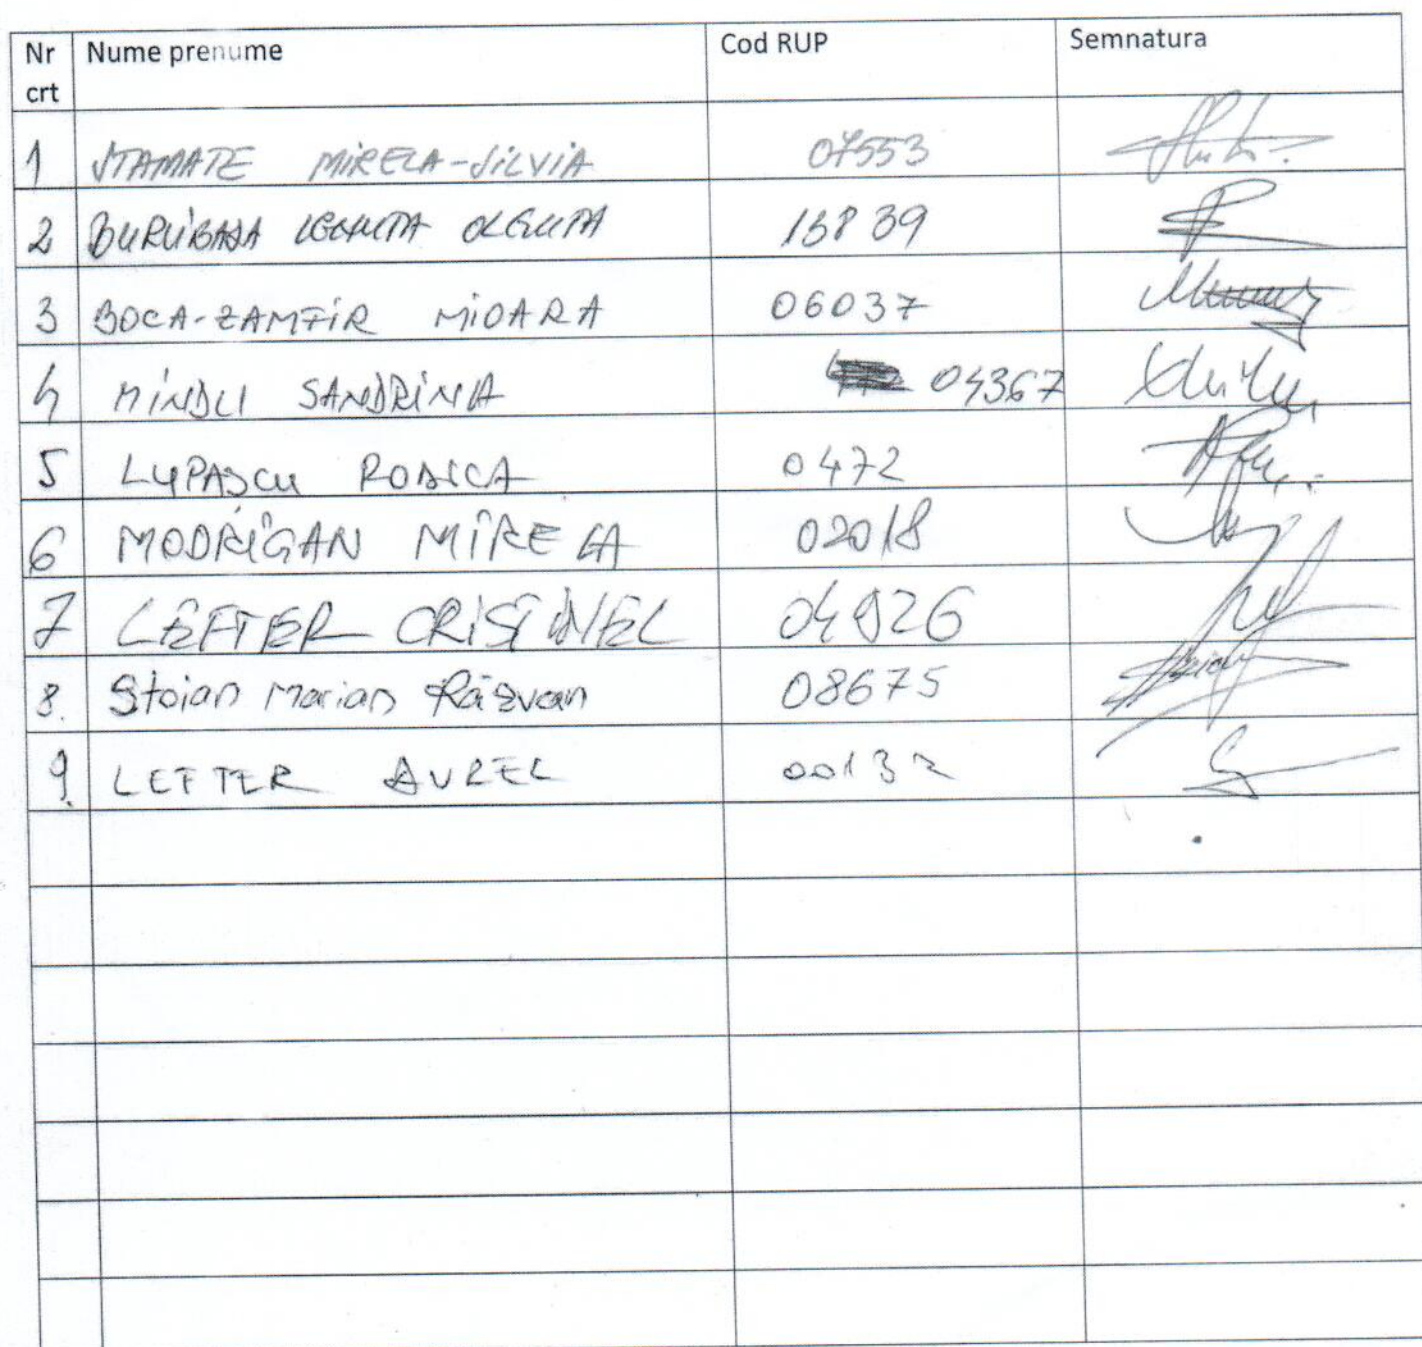 Nr crt Nume prenume Cod RUP Semnatura
1 STAMATE MIRELA-SILVIA 07553
2 OLGUTA 13839
3 BOCA-ZAMFIR MIOARA 06037
4 MINDU SANDRINA 04367
5 LUPAȘCU RODICA 0472
6 MODRIGAN MIRELA 02018
7 LEFTER CRISTINEL 04926
8. Stoian Marian Răzvan 08675
9. LEFTER AUREL 00132